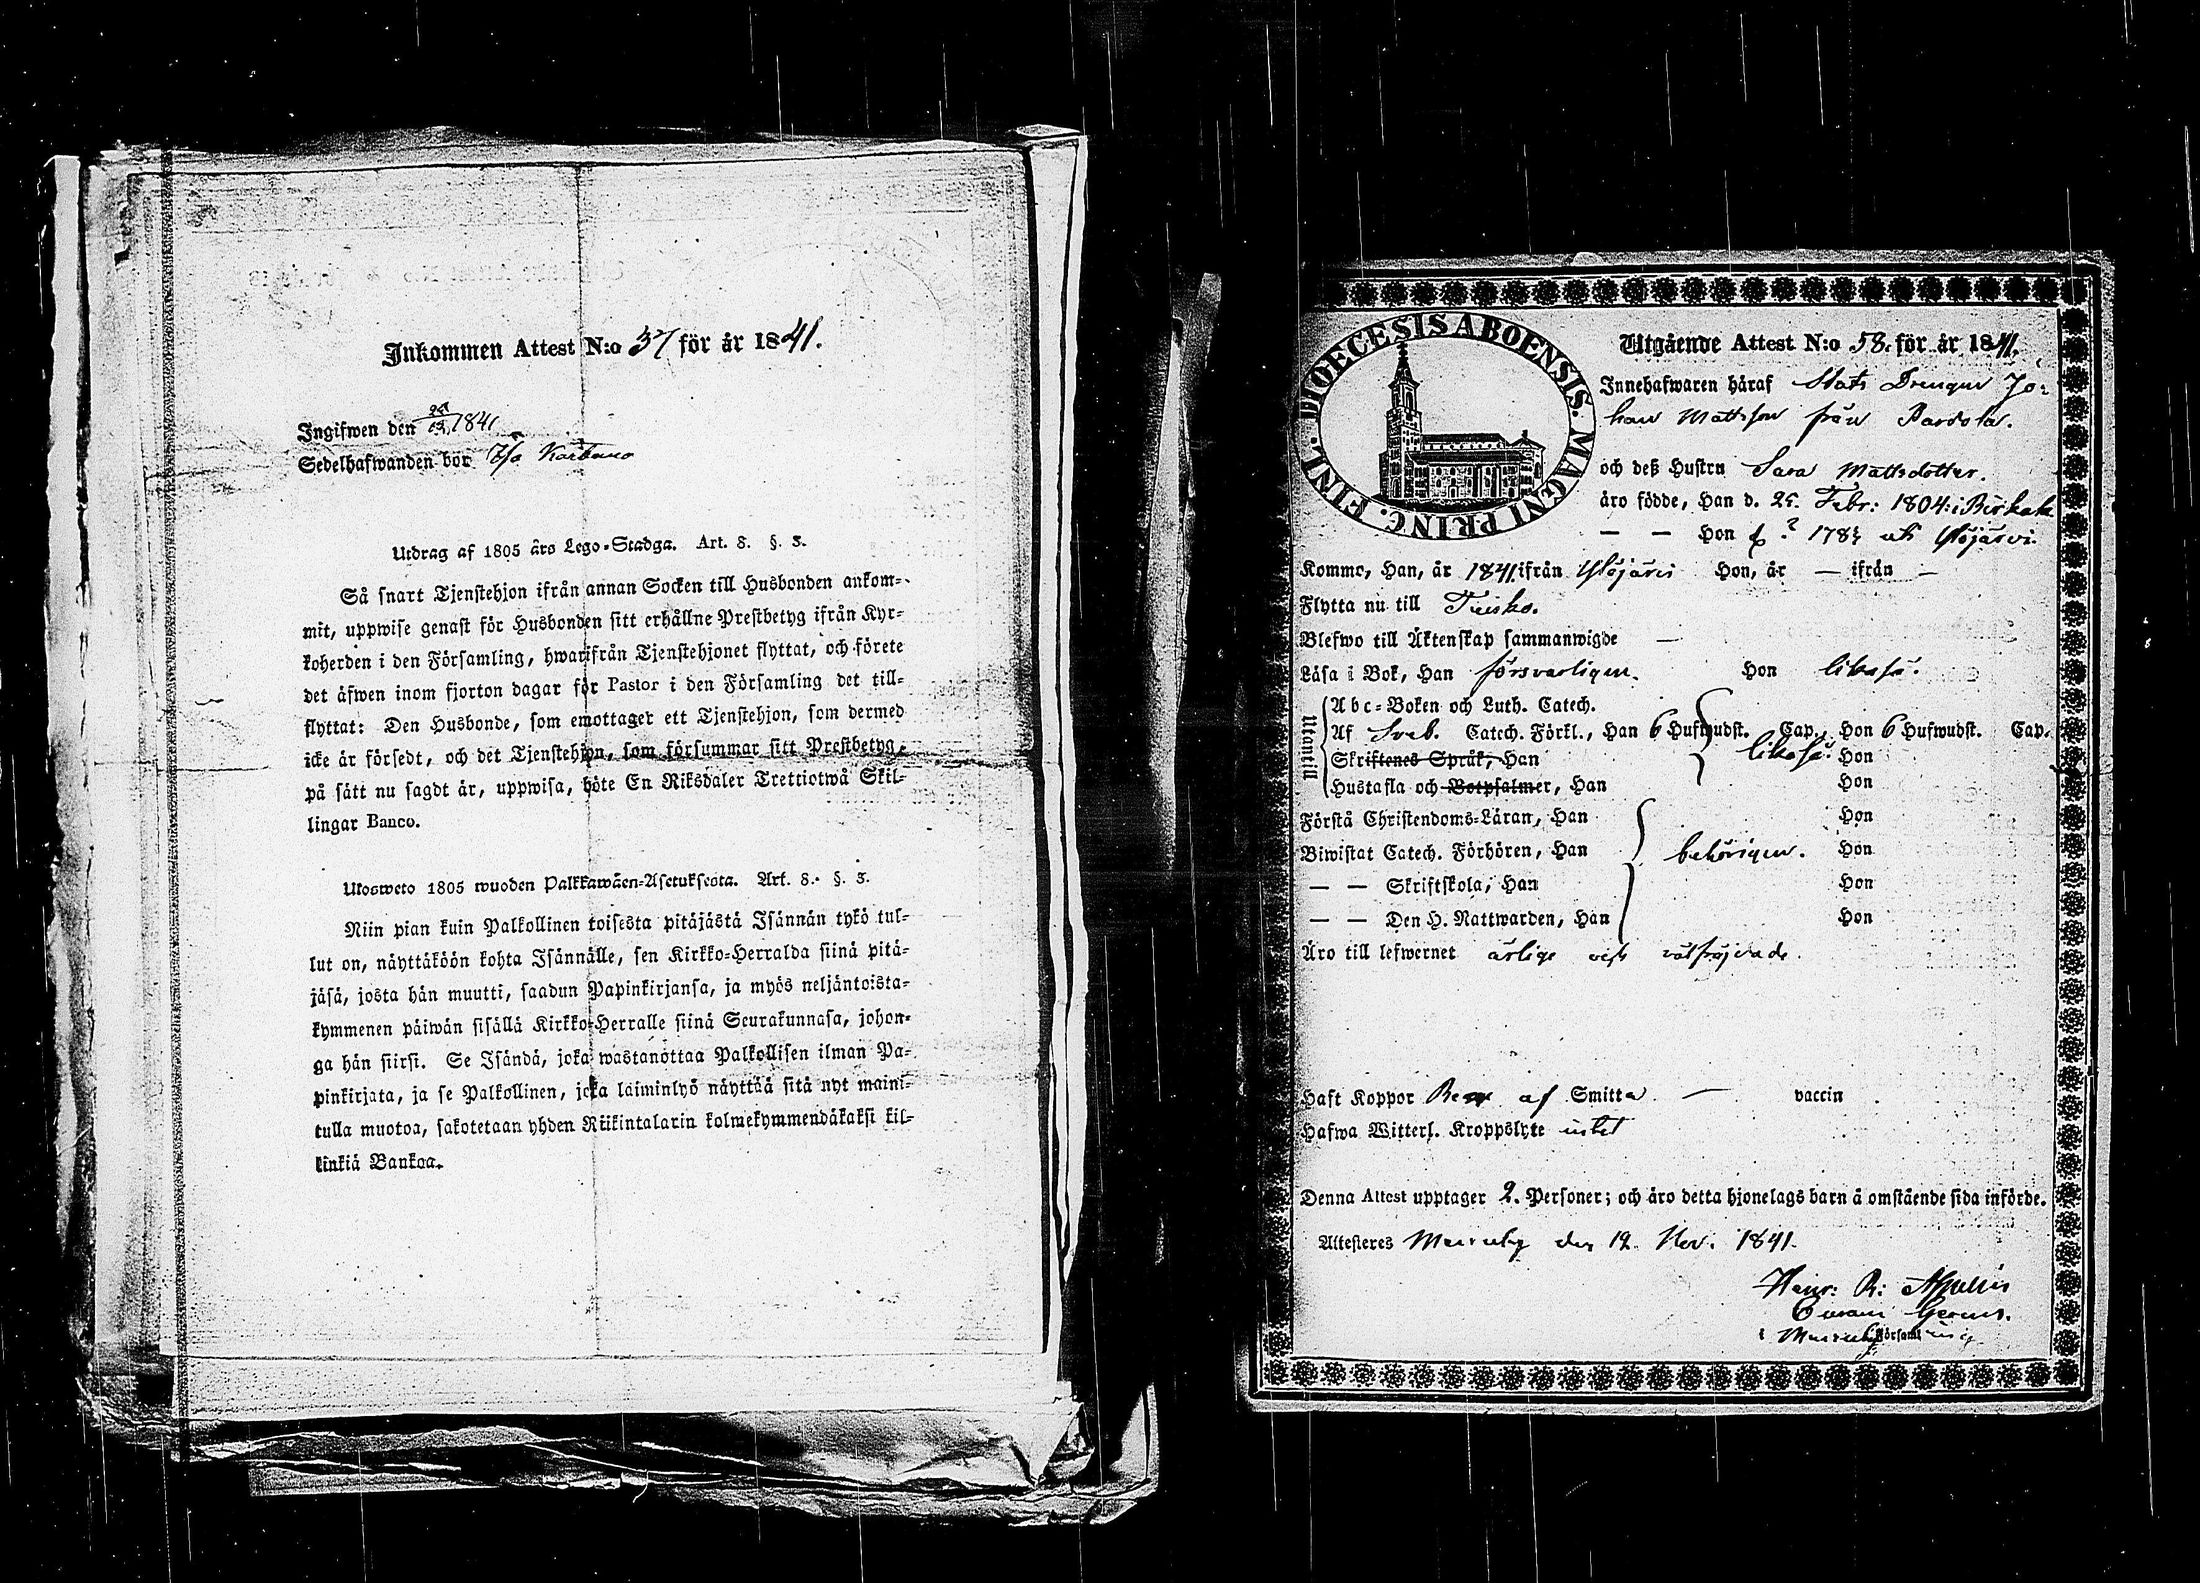 Inkommen Attest N:o 37 för år 1841.
Ingifwen den 1841
Sedelhafwanden bor Karkano
Utdrag af 1805 års Lego-Stadga. Art. 8. §. 3.
Så snart Tjenstehjon ifrån annan Socken till Husbonden ankom-
mit, uppwise genast för Husbonden sitt erhållne Prestbetyg ifrån Kyr-
koherden i den Församling, hwarifrån Tjenstehjonet flyttat, och förete
det äfwen inom fjorton dagar för Pastor i den Församling det till-
flyttat: Den Husbonde, som emottager ett Tjenstehjon, som dermed
icke är försedt, och det Tjenstehjon, som försummar sitt Prestbetyg,
på sätt nu sagdt är, uppwisa, böte En Riksdaler Trettiotwå Skil-
lingar Banco.
Ulosweto 1805 wuoden Palkkawäen-Asetuksesta. Art. 8. §. 3.
Niin pian kuin Palkollinen toisesta pitäjästä Isännän tykö tul-
lut on, näyttäköön kohta Isännälle, sen Kirkko-Herralda siinä pitä-
jäsä, josta hän muutti, saadun Papinkirjansa, ja myös neljäntoista-
kymmenen päiwän sisällä Kirkko-Herralle siinä Seurakunnasa, johon-
ga hän siirsi. Se Isändä, joka wastanottaa Palkollisen ilman Pa-
pinkirjata, ja se Palkollinen, joka laiminlyö näyttää sitä nyt maini-
tulla muotoa, sakotetaan yhden Riikintalarin kolmekymmendäkaksi kil-
linkiä Bankoa.
DIOECESIS ABOENSIS. MAGNI PRINC. FINL.
Utgående Attest N:o 58. för år 1841.
Innehafwaren häraf Stats Drengen Jo-
han Mattsson från Pardola.
och deß Hustru Sara Mattsdotter.
äro födde, Han d. 25. Febr: 1804: i Birkala
— — Hon d ? 178 uti Ylöjärvi.
Komme, Han, år 1841. ifrån Ylöjärvi Hon, år — ifrån —
Flytta nu till Teisko.
Blefwo till Äktenskap sammanwigde —
Läsa i Bok, Han försvarligen. Hon likaså.
Utantill
Abc-Boken och Luth. Catech.
Af Sveb. Catech. Förkl., Han 6 Hufwudst. Cap., Hon 6 Hufwudst. Cap.
Skriftenes Språk, Han likaså. Hon
Hustafla och Botpsalmer, Han Hon
Förstå Christendoms-Läran, Han Hon
Biwistat Catech. Förhören, Han behörigen. Hon
— — Skriftskola, Han Hon
— — Den H. Nattwarden, Han Hon
Äro till lefwernet ärlige och välfrejdade.
Haft Koppor Rena af Smitta — vaccin
Hafwa Witterl. Kroppslyte intet
Denna Attest upptager 2. Personer; och äro detta hjonelags barn å omstående sida införde.
Attesteres Messuby den 12. Nov. 1841.
Henr: R:
i Messuby Församling